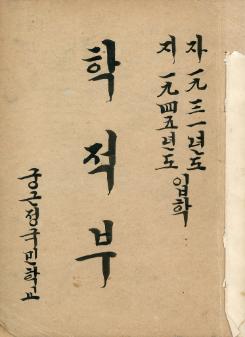 자 一九三一년도
지 一九四五년도 입학
학적부
궁근정국민학교